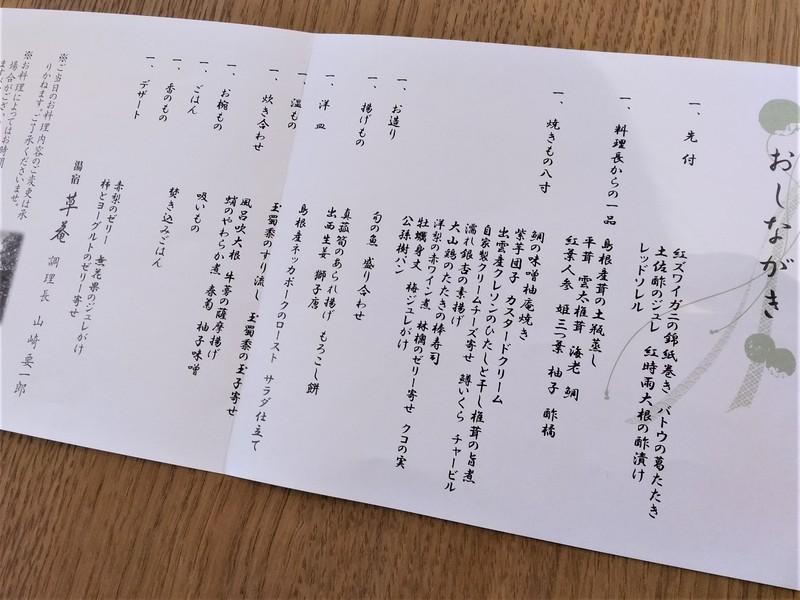 おしながき
一、先付
紅ズワイガニの錦紙巻き　バトウの葛たたき
土佐酢のジュレ　紅時雨大根の酢漬け
レッドソレル
一、料理長からの一品
島根産茸の土瓶蒸し
平茸　雲太椎茸　海老　鯛
紅葉人参　姫三つ葉　柚子　酢橘
一、焼きもの八寸
鯛の味噌柚庵焼き
紫芋団子　カスタードクリーム
出雲産クレソンのひたしと干し椎茸の旨煮
自家製クリームチーズ寄せ　鱒いくら　チャービル
濡れ銀杏の素揚げ
大山鶏のたたきの棒寿司
洋梨の赤ワイン煮　林檎のゼリー寄せ　クコの実
牡蠣身丈　梅ジュレがけ
公孫樹パン
一、お造り
旬の魚　盛り合わせ
一、揚げもの
真菰筍のあられ揚げ　もろこし餅
出西生姜　獅子唐
一、洋皿
島根産ネッカポークのロースト　サラダ仕立て
一、温もの
玉蜀黍のすり流し　玉蜀黍の玉子寄せ
一、炊き合わせ
風呂吹大根　牛蒡の薩摩揚げ
蛸のやわらか煮　春菊　柚子味噌
一、お椀もの
吸いもの
一、ごはん
焚き込みごはん
一、香のもの
一、デザート
赤梨のゼリー　無花果のジュレがけ
柿とヨーグルトのゼリー寄せ
湯宿　草菴　調理長　山﨑要一郎
※ご当日のお料理内容のご変更は承
りかねます。ご了承くださいませ。
※お料理によってはお時間
場合がござい
ます